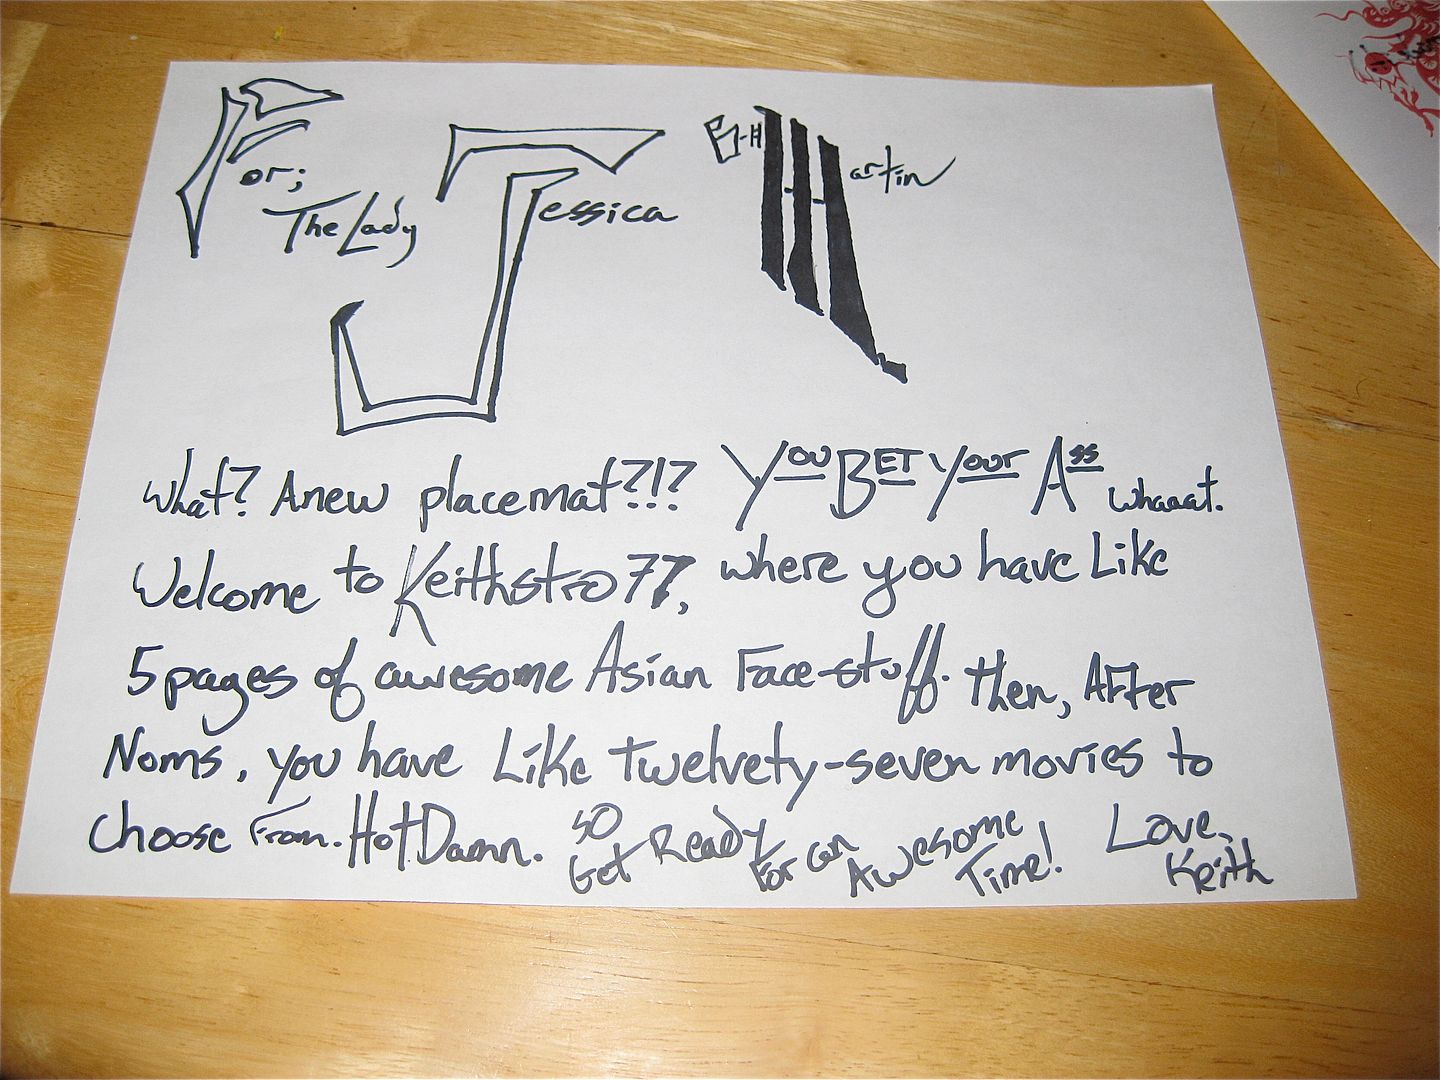 For;
The Lady
Jessica
B-H Martin
What? A new placemat?!? You BET Your Ass whaaat.
Welcome to Keithstro77, where you have Like
5 pages of awesome Asian Face-stuff. then, AFter
Noms, you have Like Twelvety-seven movies to
choose From. Hot Damn. so Get Ready For an Awesome Time! Love,
Keith